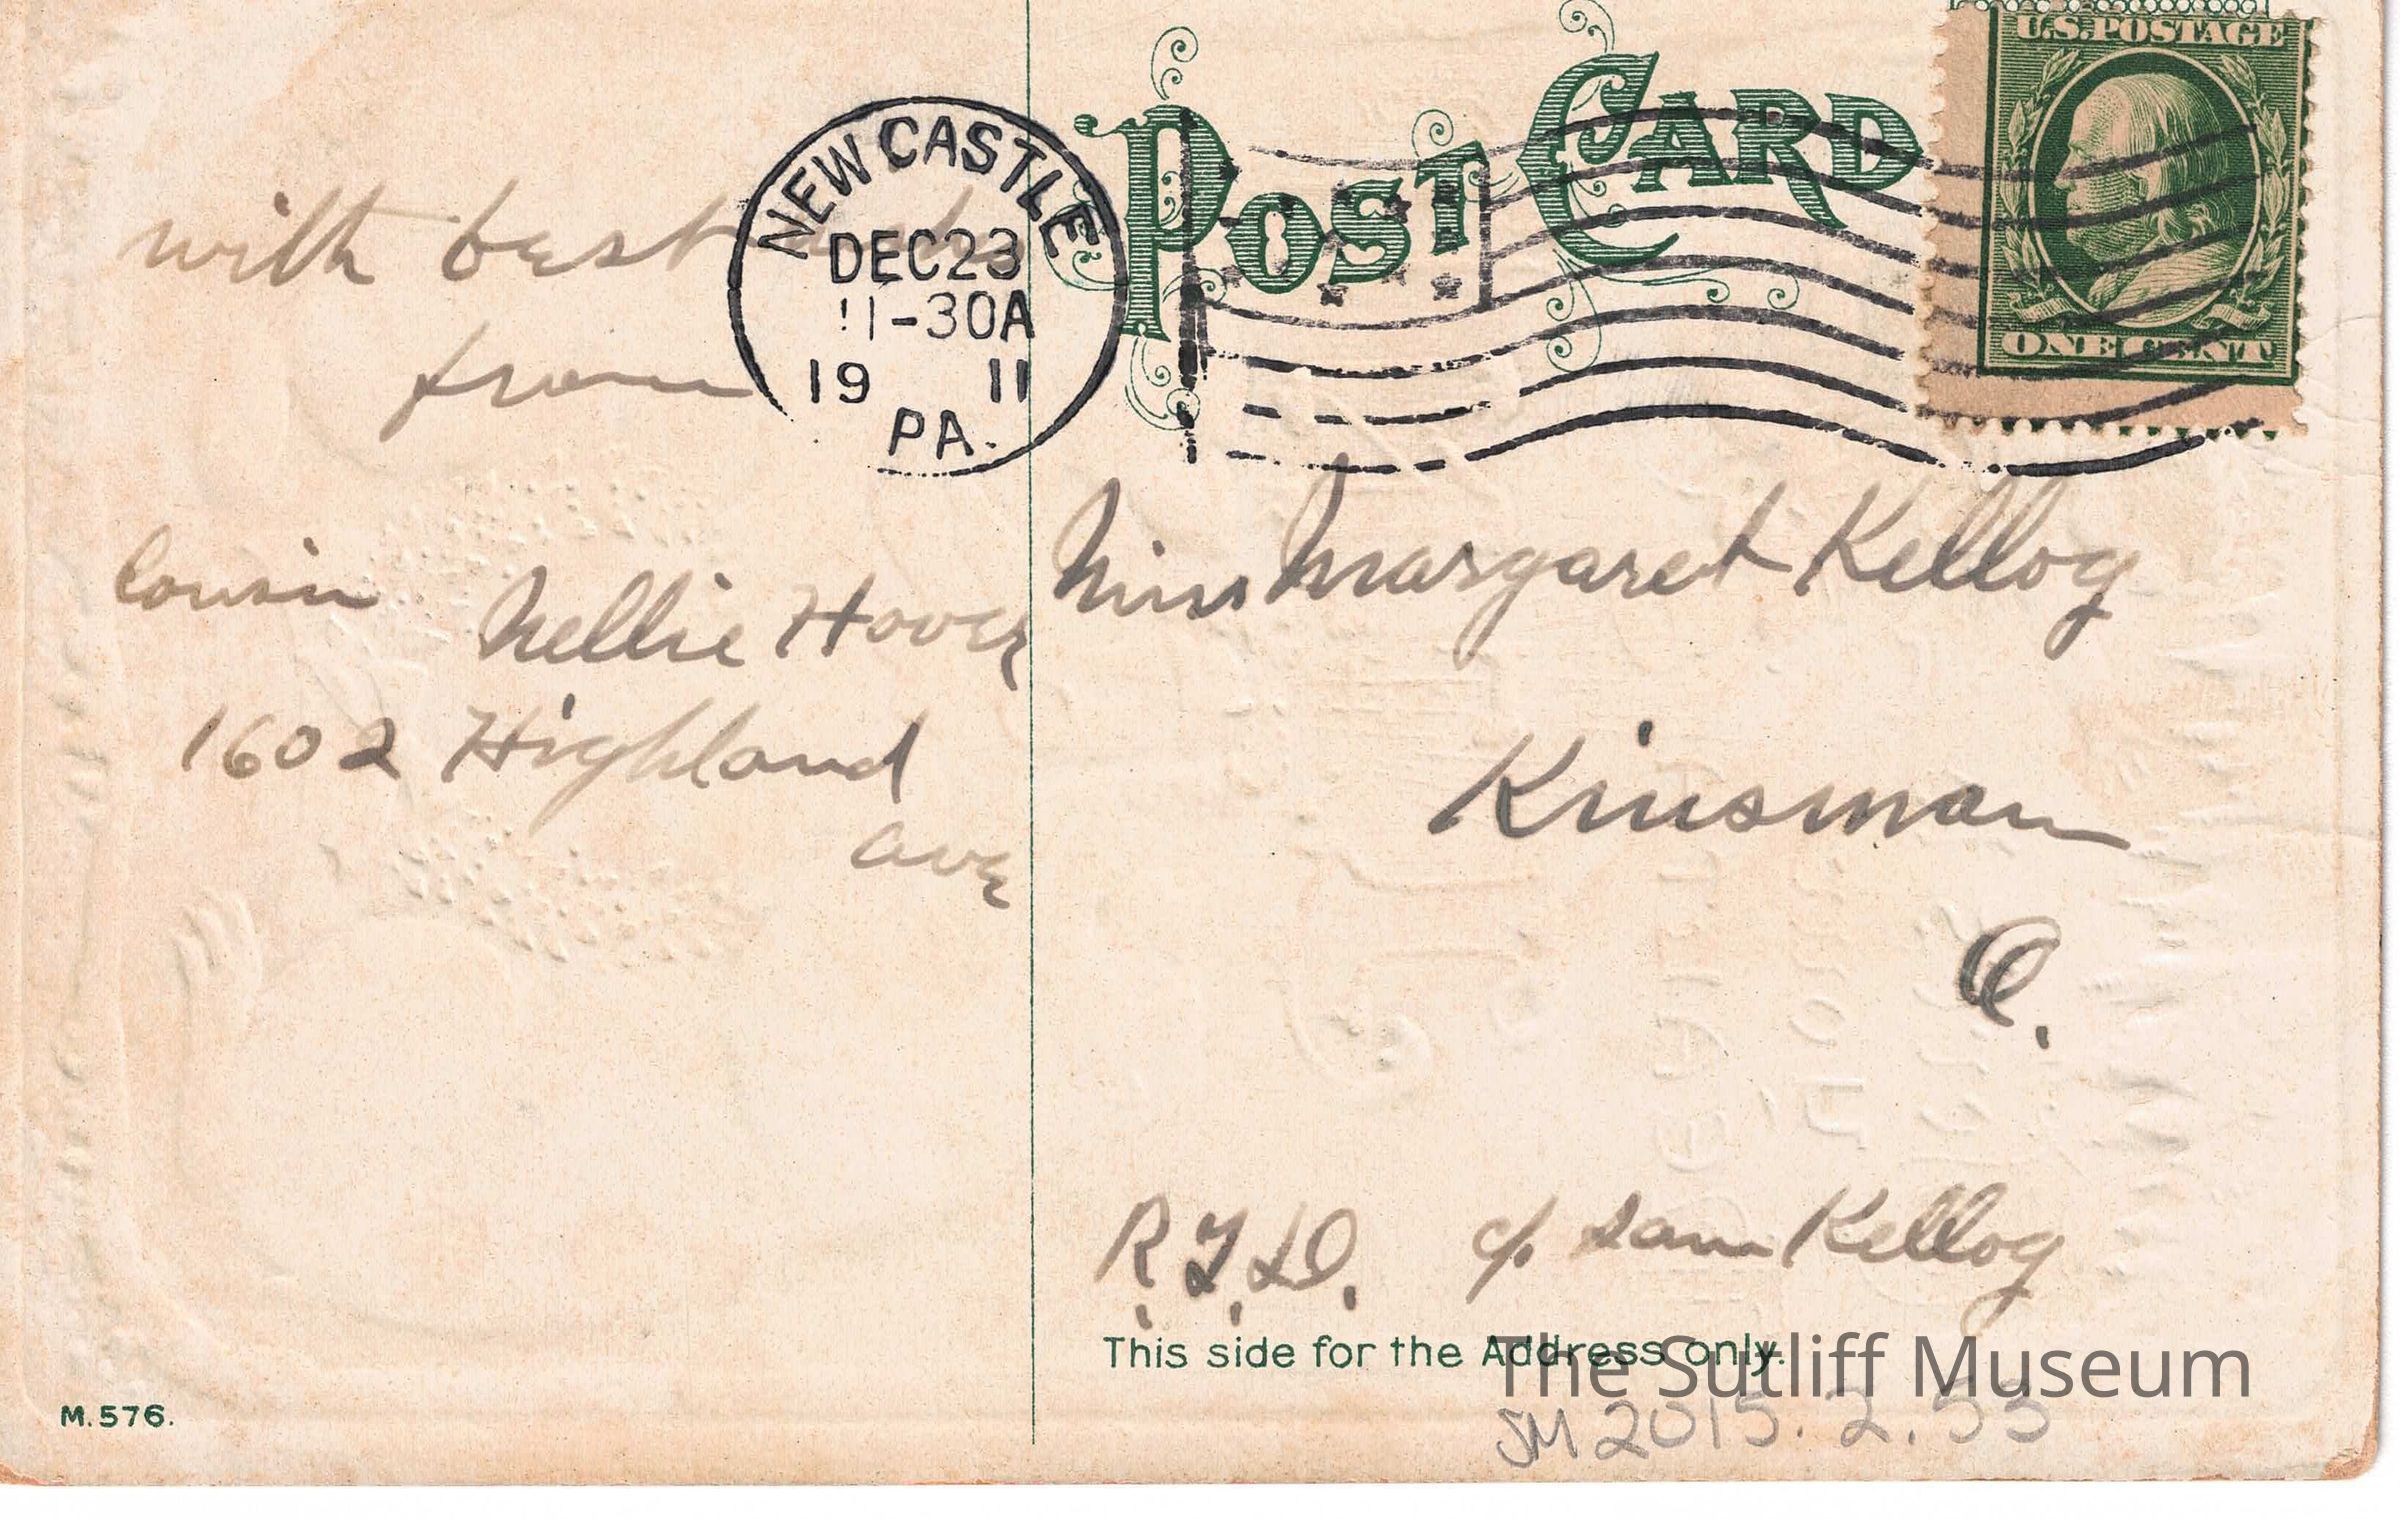 with best
from
Cousin
Nellie Hover
1602 Highland
ave
M.576.
POST CARD
NEW CASTLE
DEC 23
11-30A
19 11
PA.
U.S. POSTAGE
ONE CENT
Miss Margaret Kellog
Kinsman
O.
R.F.D. c/o Sam Kellog
This side for the Address only.
The Sutliff Museum
SM 2015.2.53